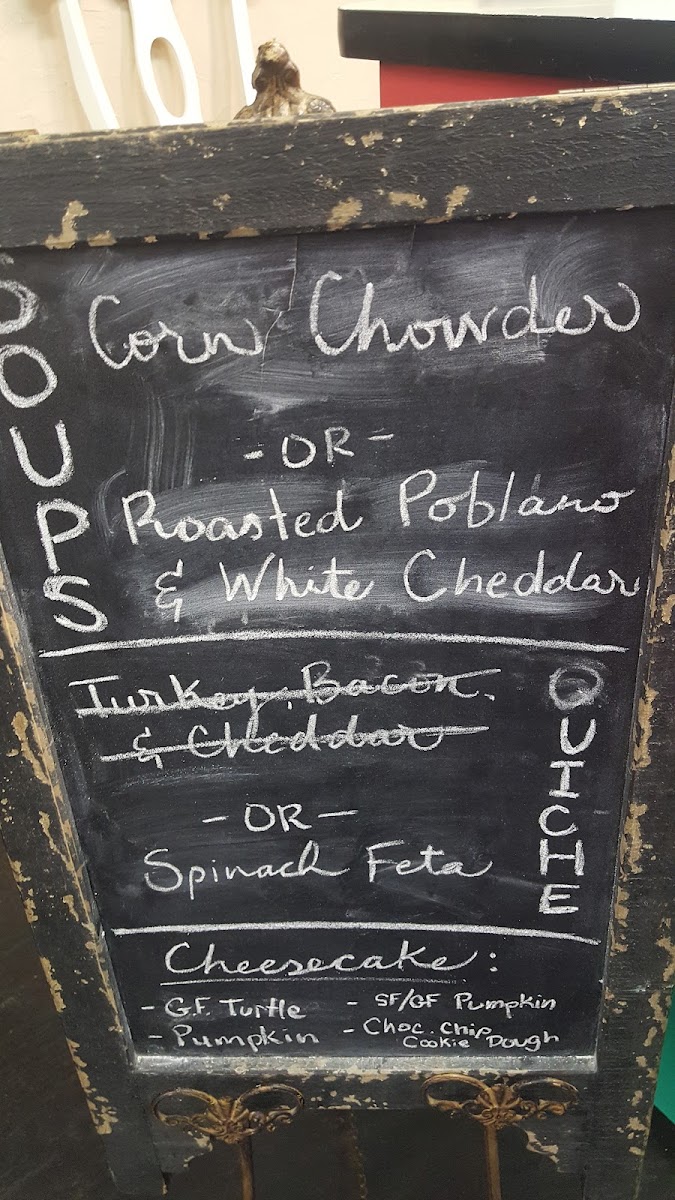 SOUPS
Corn Chowder
- OR -
Roasted Poblano
& White Cheddar
QUICHE
Turkey, Bacon,
& Cheddar
- OR -
Spinach Feta
Cheesecake:
- G.F. Turtle
- Pumpkin
- SF/GF Pumpkin
- Choc. Chip
Cookie Dough